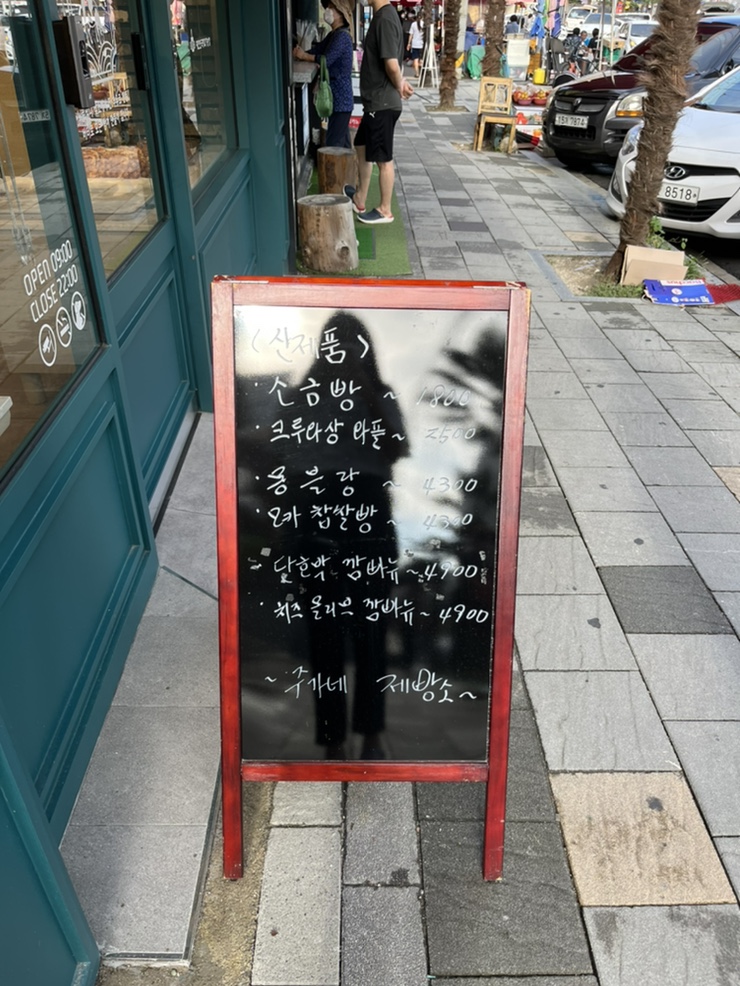 OPEN 09:00
CLOSE 22:00
<신제품>
· 소금빵 ~ 1800
· 크루와상 와플 ~ 2500
· 몽블랑 ~ 4300
· 모카 찹쌀빵 ~ 4300
· 단호박 깜빠뉴 ~ 4900
· 치즈 올리브 깜빠뉴 ~ 4900
~ 주가네 제빵소 ~
8518